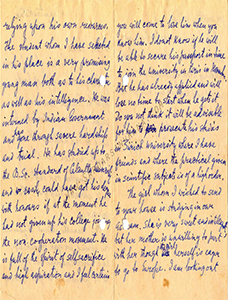 relying upon his own resources.
The student whom I have selected
in his place is a very promising
young man both as to his character
as well as his intelligence. He was
interned by Indian Government
and gone through severe hardship
and trial. He has studied up to
the B.Sc. standard of Calcutta University
and could have got his
with honours if at the moment he
had not given up his college for
the non cooperation movement. He
is full of the spirit of self sacrifice
and high aspiration and I feel certain
you will come to love him when you
know him. I do not know if he will
be able to secure his passport in time
to join the University in
but he has already applied and will
lose no time to start when he gets it.
Do you not think it will be advisable
for him to prosecute his studies
in Zurich University where I have
friends and where the practical
in scientific subjects is of a high order.
The girl whom I wished to send
to your house is studying in our
She is very sweet and willing
but her mother is unwilling to part
with her though herself is eager
to go to Europe. I am looking out